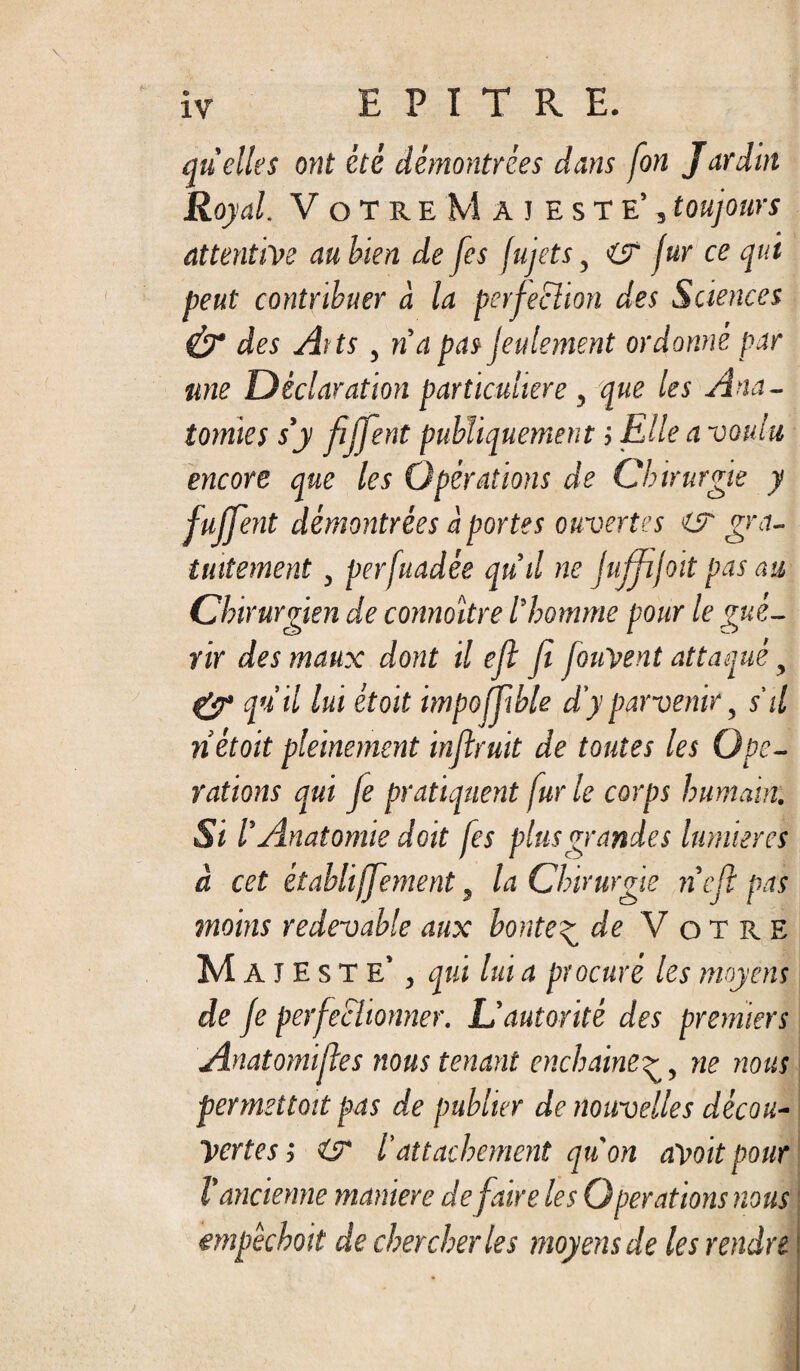 iv EPITRE.
qu'elles ont été démontrées dans ſon Jardin
Royal. VOTRE MAJESTE', toujours
attentive au bien de ſes ſujets, & ſur ce qui
peut contribuer à la perfection des Sciences
& des Arts, n'a pas ſeulement ordonné par
une Déclaration particuliere, que les Ana-
tomies s'y fiſſent publiquement; Elle a voulu
encore que les Opérations de Chirurgie y
fuſſent démontrées à portes ouvertes & gra-
tuitement, perſuadée qu'il ne ſuffiſoit pas au
Chirurgien de connoître l'homme pour le gué-
rir des maux dont il eſt ſi ſouvent attaqué,
& qu'il lui étoit impoſſible d'y parvenir, s'il
n'étoit pleinement inſtruit de toutes les Ope-
rations qui ſe pratiquent ſur le corps humain.
Si l'Anatomie doit ſes plus grandes lumieres
à cet établiſſement, la Chirurgie n'eſt pas
moins redevable aux bontez de VOTRE
MAJESTE', qui lui a procuré les moyens
de ſe perfectionner. L'autorité des premiers
Anatomiſtes nous tenant enchainez, ne nous
permettoit pas de publier de nouvelles décou-
vertes; & l'attachement qu'on avoit pour
l'ancienne maniere de faire les Operations nous
empêchoit de chercher les moyens de les rendre